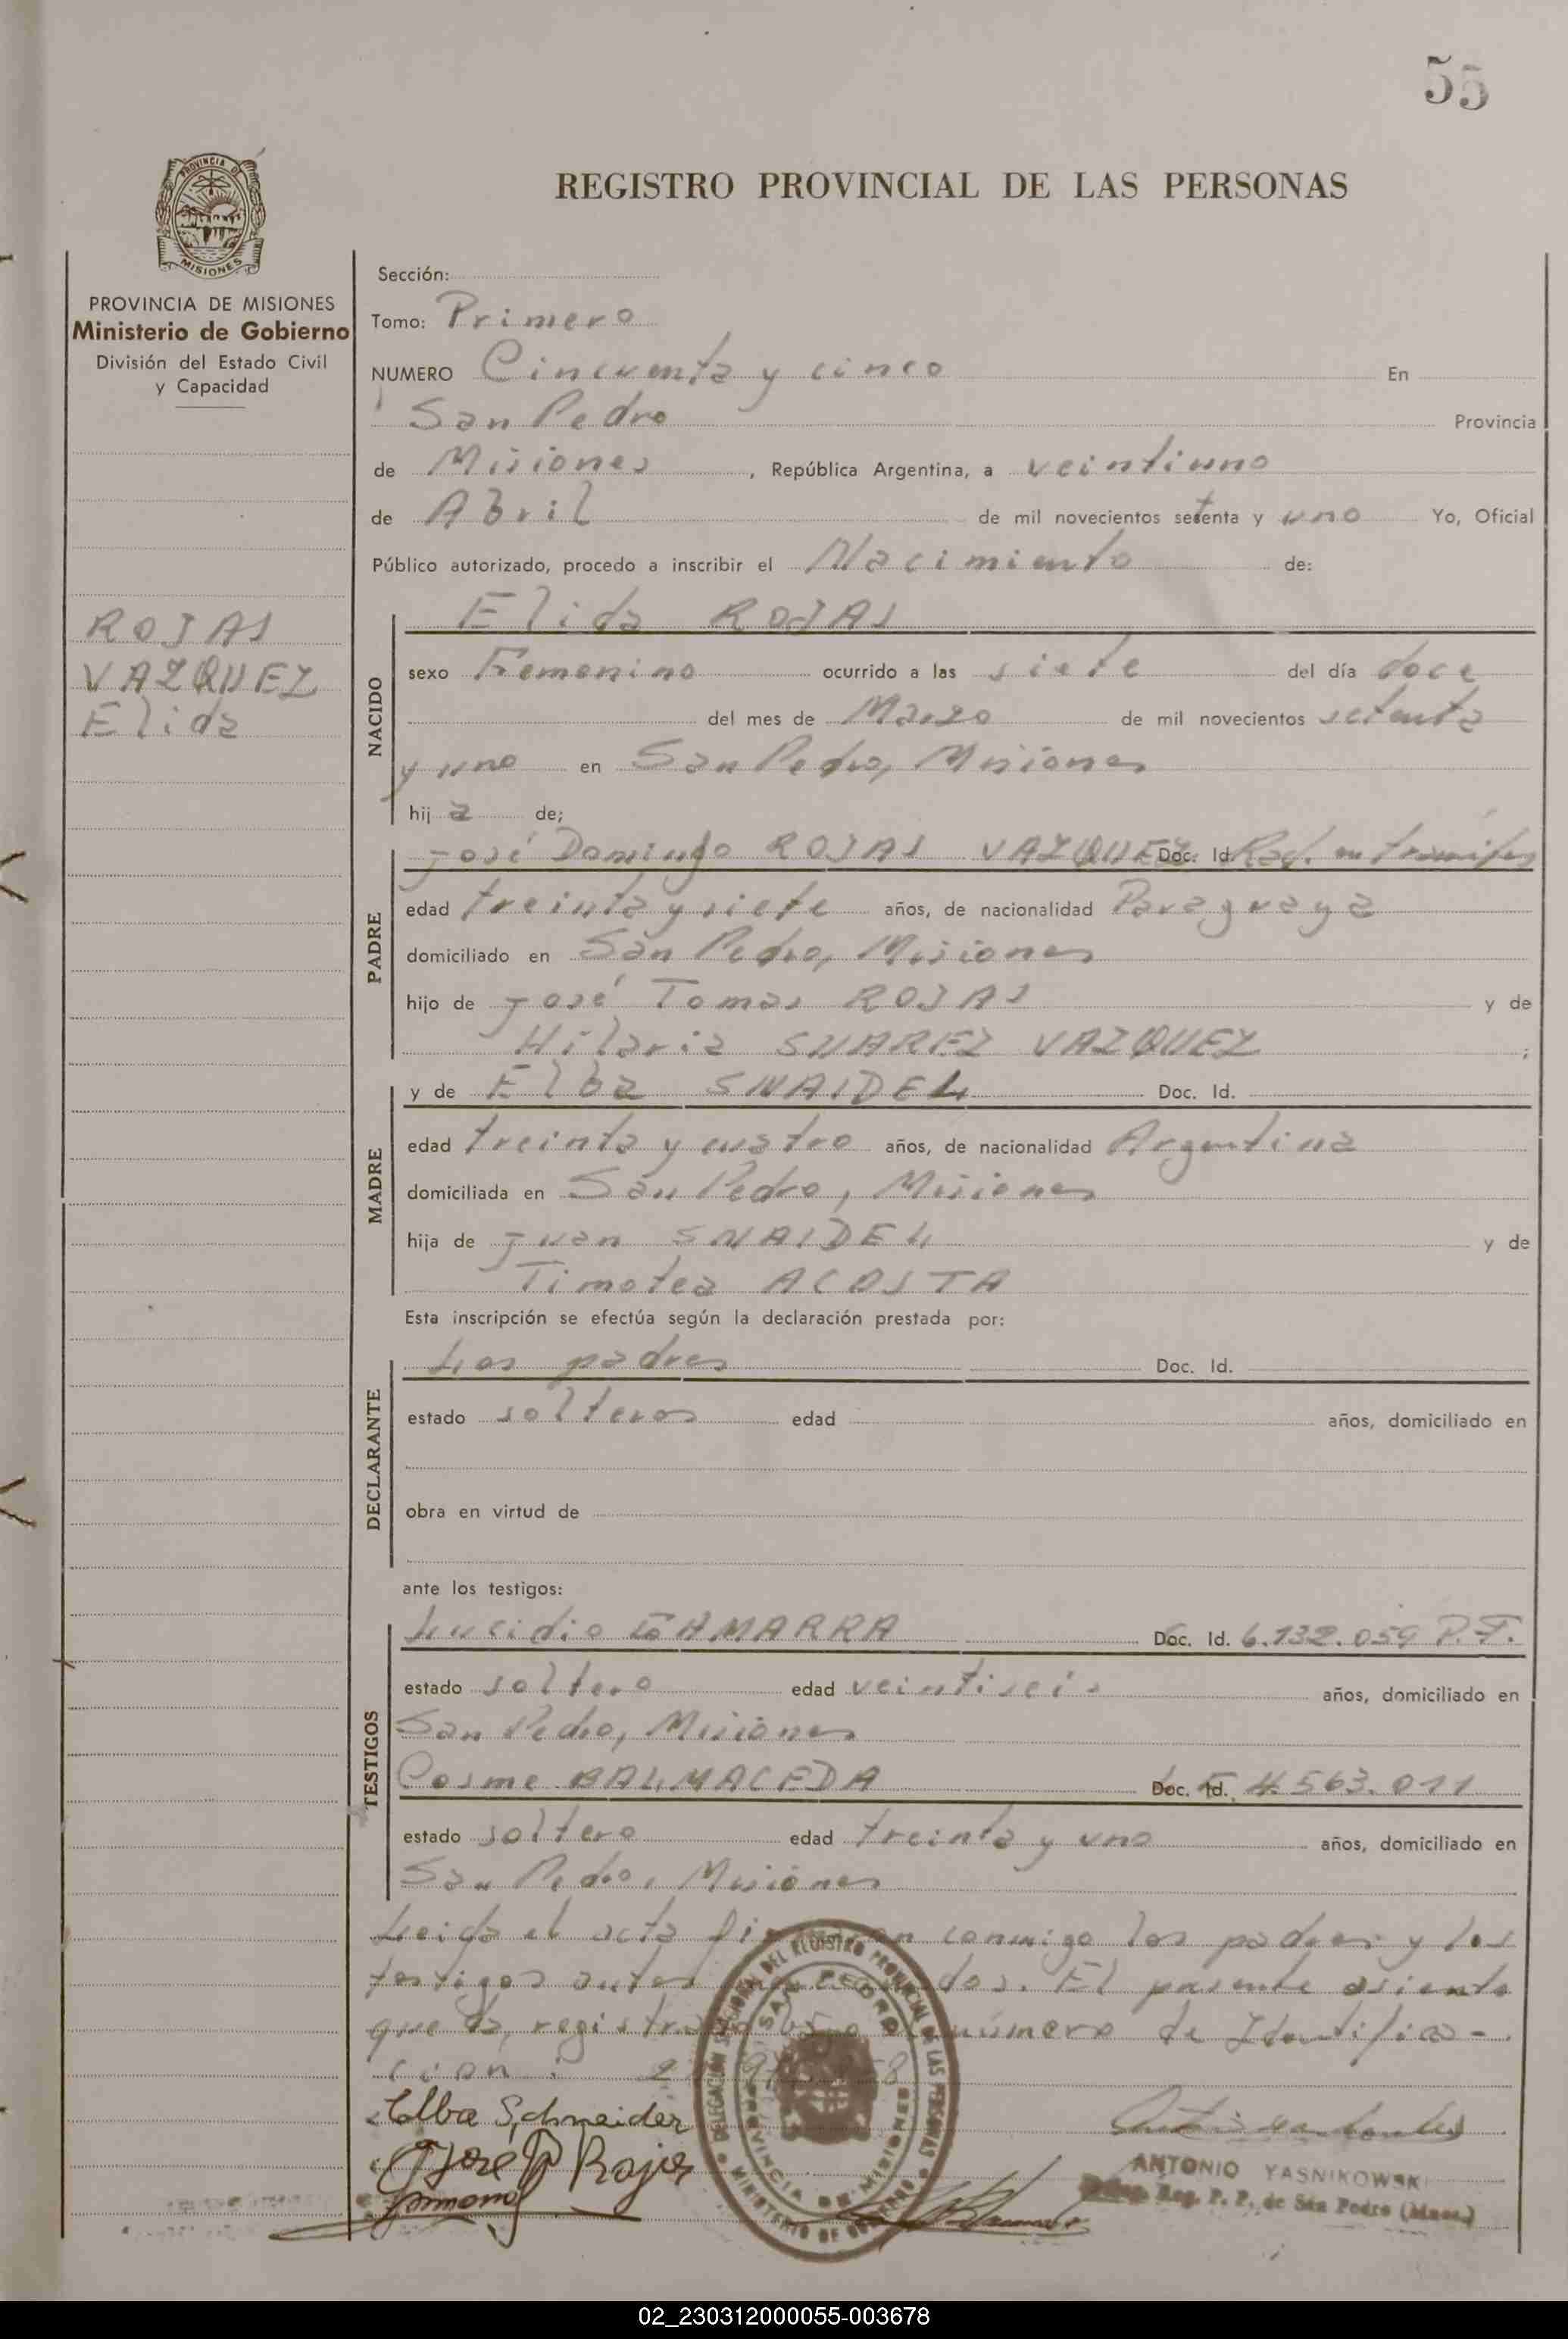 55
PROVINCIA DE MISIONES
REGISTRO PROVINCIAL DE LAS PERSONAS
PROVINCIA DE MISIONES
Ministerio de Gobierno
División del Estado Civil
y Capacidad
ROJAS
VAZQUEZ
Elida
Sección:
Tomo: Primero
NUMERO Cincuenta y cinco En
San Pedro Provincia
de Misiones, República Argentina, a veintiuno
de Abril de mil novecientos setenta y uno Yo, Oficial
Público autorizado, procedo a inscribir el Nacimiento de:
NACIDO
Elida ROJAS
sexo Femenino ocurrido a las siete del día doce
del mes de Marzo de mil novecientos setenta
y uno en San Pedro, Misiones
hija de;
PADRE
José Domingo ROJAS VAZQUEZ Doc. Id. Rad. en trámites
edad treinta y siete años, de nacionalidad Paraguaya
domiciliado en San Pedro, Misiones
hijo de José Tomas ROJAS y de
Hilaria SUAREZ VAZQUEZ ;
MADRE
y de Elba SNAIDEL Doc. Id.
edad treinta y cuatro años, de nacionalidad Argentina
domiciliada en San Pedro, Misiones
hija de Juan SNAIDEL y de
Timotea ACOSTA
Esta inscripción se efectúa según la declaración prestada por:
DECLARANTE
Los padres Doc. Id.
estado solteros edad años, domiciliado en
obra en virtud de
ante los testigos:
TESTIGOS
Lucidio GAMARRA Doc. Id. 6.132.059 P.F.
estado soltero edad veintiseis años, domiciliado en
San Pedro, Misiones
Cosme BALMACEDA Doc. Id. 4.563.011
estado soltero edad treinta y uno años, domiciliado en
San Pedro, Misiones
Leida el acta conmigo los padres y los
testigos antes. El presente asiento
que da registrado bajo el número de Identifica-
cion:
Elba Schneider
Jose D Rojas
DELEGACIÓN SECCIONAL DEL REGISTRO PROVINCIAL DE LAS PERSONAS
SAN PEDRO
PROVINCIA DE MISIONES
MINISTERIO DE GOBIERNO
ANTONIO YASNIKOWSKI
Reg. P. P. de San Pedro (Mnes.)
02_230312000055-003678